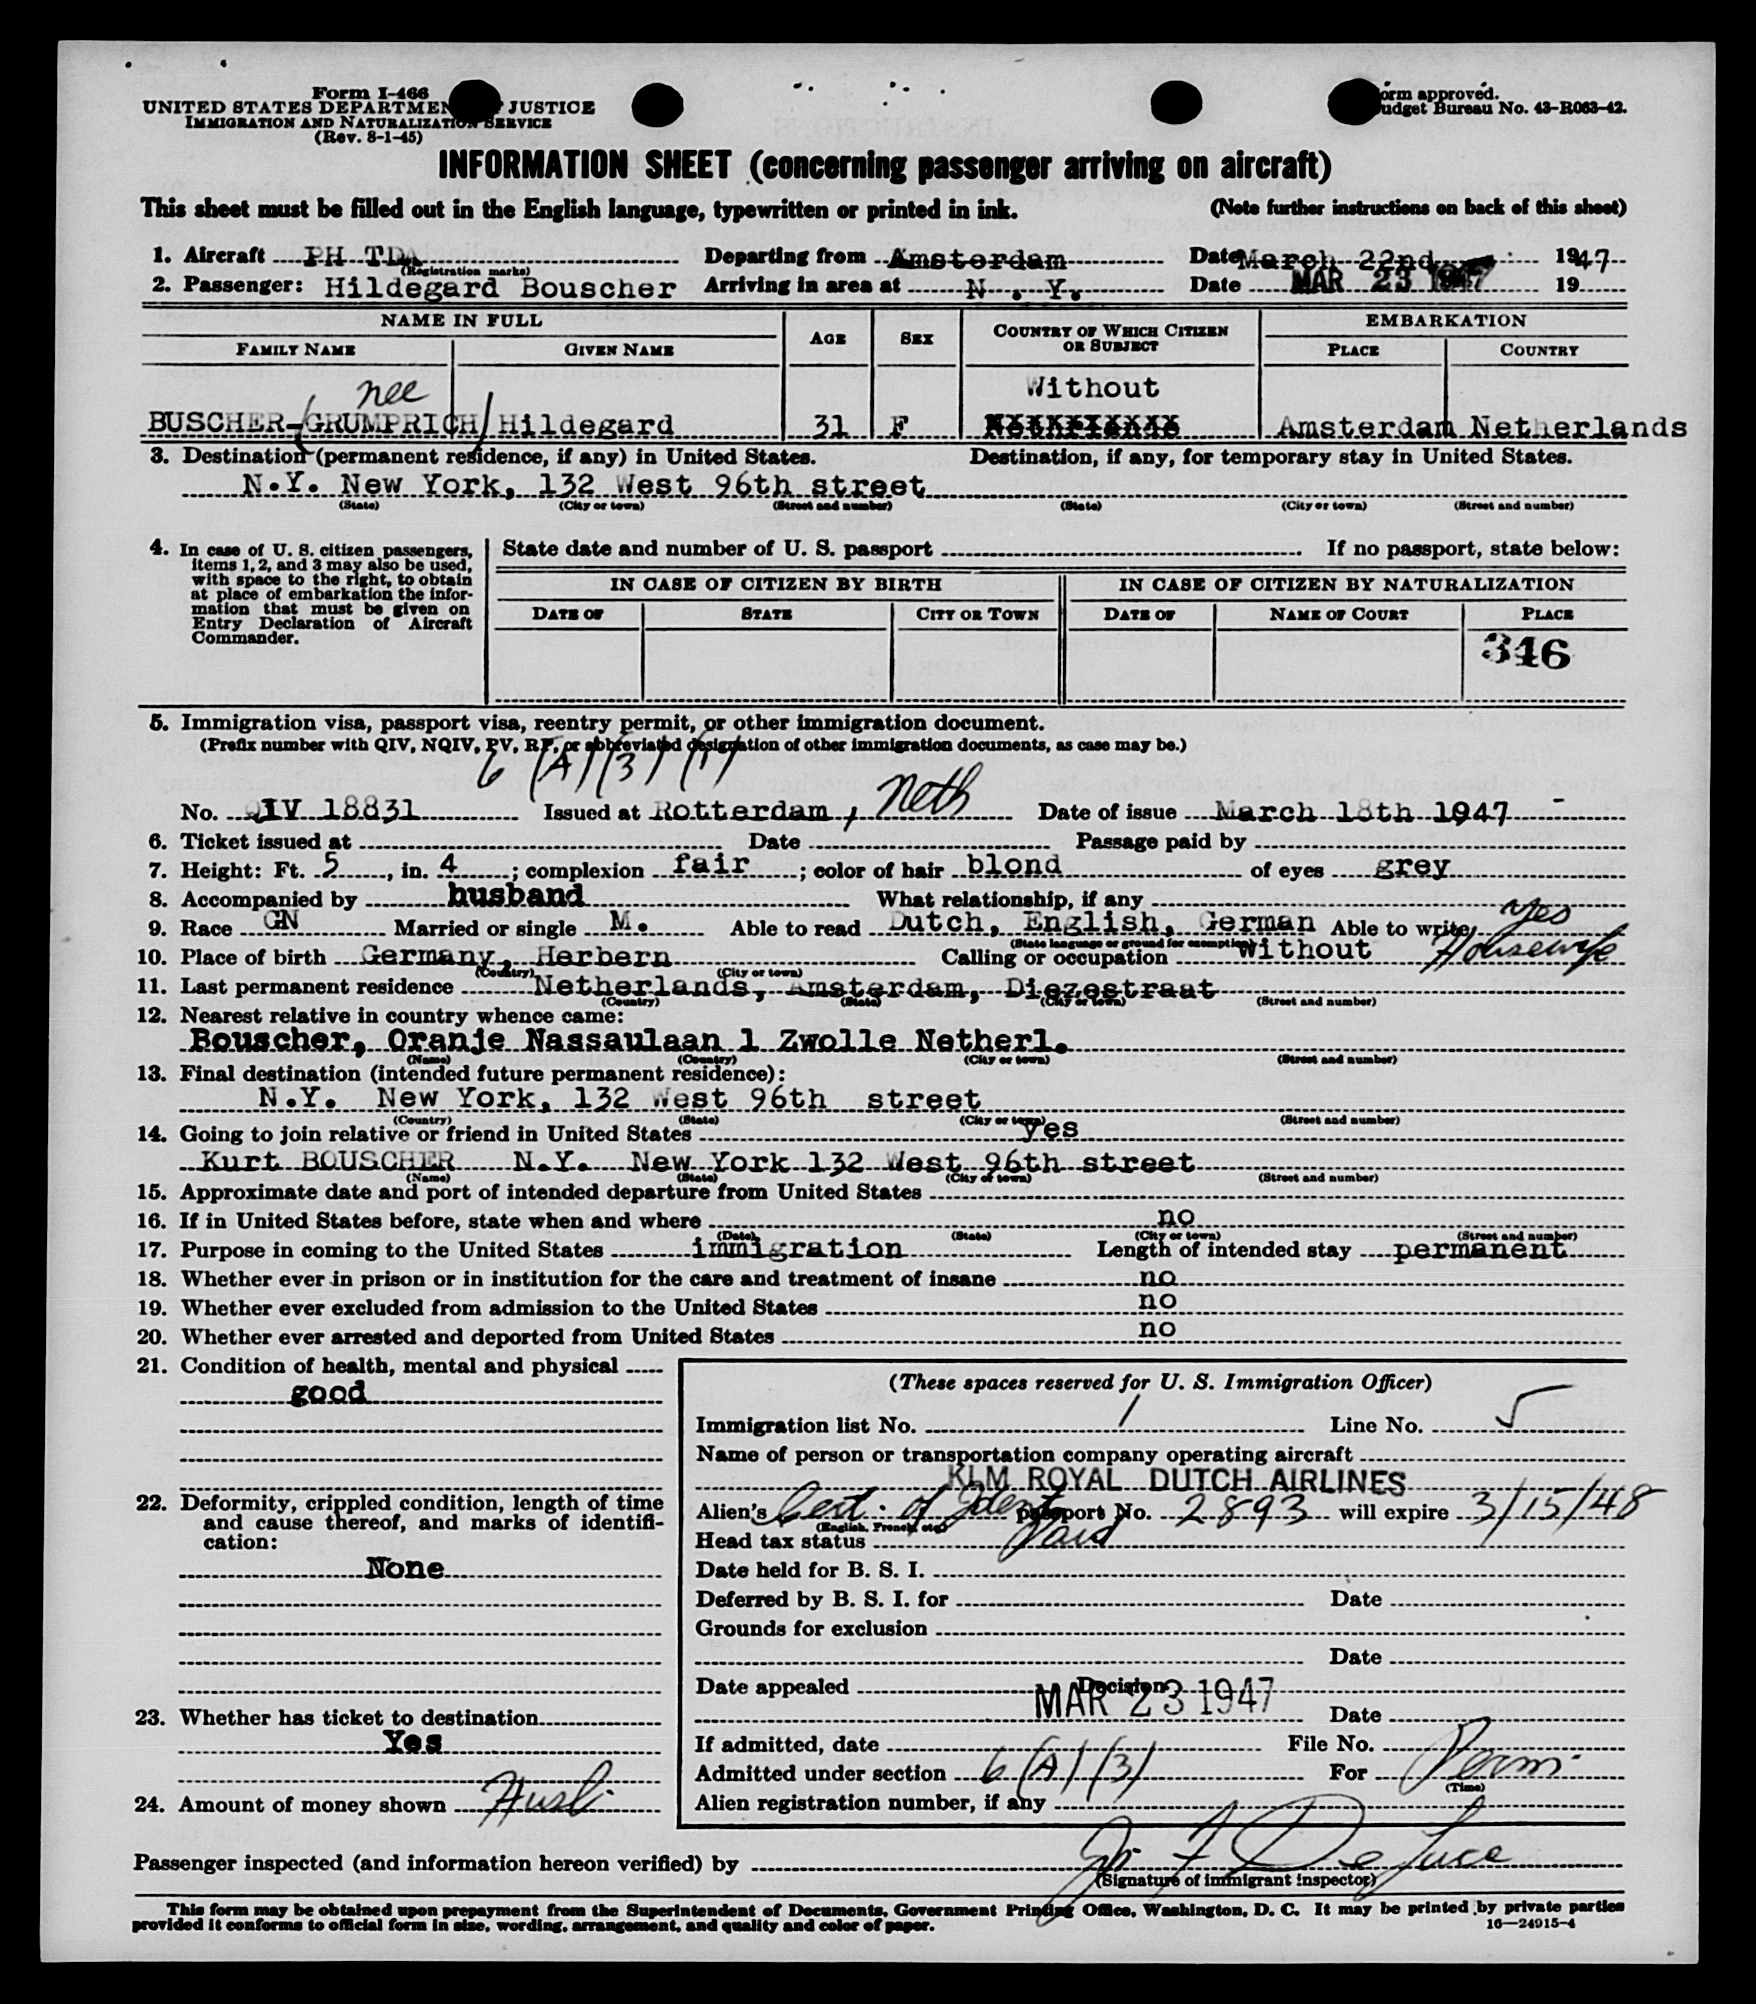 Form I-466
UNITED STATES DEPARTMENT JUSTICE
IMMIGRATION AND NATURALIZATION SERVICE
(Rev. 8-1-45)
orm approved.
udget Bureau No. 43-R063-42.
INFORMATION SHEET (concerning passenger arriving on aircraft)
This sheet must be filled out in the English language, typewritten or printed in ink. (Note further instructions on back of this sheet)
1. Aircraft PH TDA Departing from Amsterdam Date March 22nd 1947
(Registration marks)
2. Passenger: Hildegard Bouscher Arriving in area at N. Y. Date MAR 23 1947 19
NAME IN FULL AGE SEX COUNTRY OF WHICH CITIZEN OR SUBJECT EMBARKATION
FAMILY NAME GIVEN NAME PLACE COUNTRY
nee Without
BUSCHER-(GRUMPRICH) Hildegard 31 F Amsterdam Netherlands
3. Destination (permanent residence, if any) in United States. Destination, if any, for temporary stay in United States.
N.Y. New York, 132 West 96th street
(State) (City or town) (Street and number) (State) (City or town) (Street and number)
4. In case of U. S. citizen passengers, items 1, 2, and 3 may also be used, with space to the right, to obtain at place of embarkation the information that must be given on Entry Declaration of Aircraft Commander.
State date and number of U. S. passport If no passport, state below:
IN CASE OF CITIZEN BY BIRTH IN CASE OF CITIZEN BY NATURALIZATION
DATE OF STATE CITY OR TOWN DATE OF NAME OF COURT PLACE
346
5. Immigration visa, passport visa, reentry permit, or other immigration document.
(Prefix number with QIV, NQIV, PV, RP, or abbreviated designation of other immigration documents, as case may be.)
6 (A) (3) (1)
No. QIV 18831 Issued at Rotterdam, Neth Date of issue March 18th 1947
6. Ticket issued at Date Passage paid by
7. Height: Ft. 5, in. 4; complexion fair; color of hair blond of eyes grey
8. Accompanied by husband What relationship, if any
9. Race GN Married or single M. Able to read Dutch, English, German Able to write yes
(State language or ground for exemption)
10. Place of birth Germany, Herbern Calling or occupation Without Housewife
(Country) (City or town)
11. Last permanent residence Netherlands, Amsterdam, Diezestraat
(Country) (State) (City or town) (Street and number)
12. Nearest relative in country whence came:
Bouscher, Oranje Nassaulaan 1 Zwolle Netherl.
(Name) (Country) (City or town) (Street and number)
13. Final destination (intended future permanent residence):
N.Y. New York, 132 West 96th street
(Country) (State) (City or town) (Street and number)
14. Going to join relative or friend in United States yes
Kurt BOUSCHER N.Y. New York 132 West 96th street
(Name) (State) (City or town) (Street and number)
15. Approximate date and port of intended departure from United States
16. If in United States before, state when and where no
(Date) (State) (City or town) (Street and number)
17. Purpose in coming to the United States immigration Length of intended stay permanent
18. Whether ever in prison or in institution for the care and treatment of insane no
19. Whether ever excluded from admission to the United States no
20. Whether ever arrested and deported from United States no
21. Condition of health, mental and physical
good
22. Deformity, crippled condition, length of time and cause thereof, and marks of identification:
None
23. Whether has ticket to destination
Yes
24. Amount of money shown Husb.
(These spaces reserved for U. S. Immigration Officer)
Immigration list No. 1 Line No. 5
Name of person or transportation company operating aircraft
KLM ROYAL DUTCH AIRLINES
Alien's Cert. of Ident passport No. 2893 will expire 3/15/48
(English, French, etc.)
Head tax status Paid
Date held for B. S. I.
Deferred by B. S. I. for Date
Grounds for exclusion
Date
Date appealed Decision
MAR 23 1947 Date
If admitted, date File No.
Admitted under section 6 (A) (3) For Perm.
(Time)
Alien registration number, if any
Passenger inspected (and information hereon verified) by De Luca
(Signature of immigrant inspector)
This form may be obtained upon prepayment from the Superintendent of Documents, Government Printing Office, Washington, D. C. It may be printed by private parties
provided it conforms to official form in size, wording, arrangement, and quality and color of paper. 16—24915-4